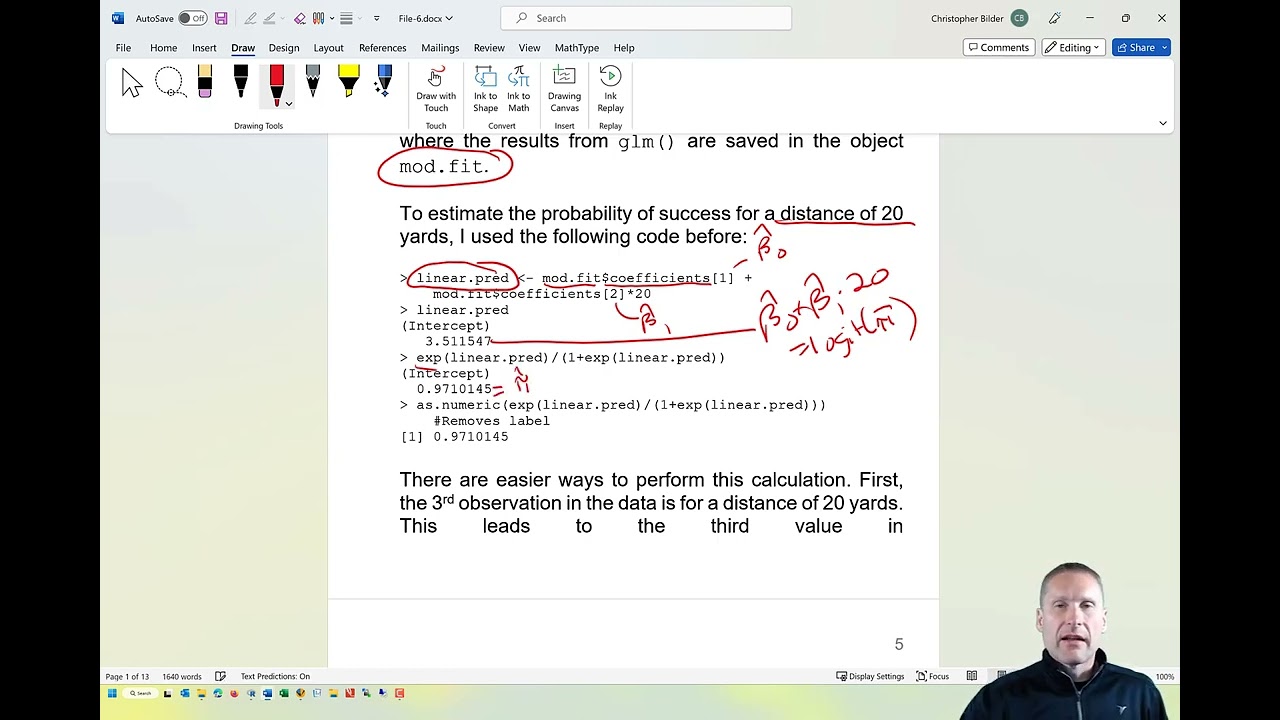 AutoSave Off File-6.docx Search Christopher Bilder CB
File Home Insert Draw Design Layout References Mailings Review View MathType Help Comments Editing Share
Draw with Touch Ink to Shape Ink to Math Drawing Canvas Ink Replay
Drawing Tools Touch Convert Insert Replay
where the results from glm() are saved in the object
mod.fit.
To estimate the probability of success for a distance of 20
yards, I used the following code before:
β̂0
> linear.pred <- mod.fit$coefficients[1] +
mod.fit$coefficients[2]*20
β̂1
β̂0+β̂1·20
=logit(π̂)
> linear.pred
(Intercept)
3.511547
> exp(linear.pred)/(1+exp(linear.pred))
(Intercept)
0.9710145 = π̂
> as.numeric(exp(linear.pred)/(1+exp(linear.pred)))
#Removes label
[1] 0.9710145
There are easier ways to perform this calculation. First,
the 3rd observation in the data is for a distance of 20 yards.
This leads to the third value in
5
Page 1 of 13 1640 words Text Predictions: On Display Settings Focus 100%
Search